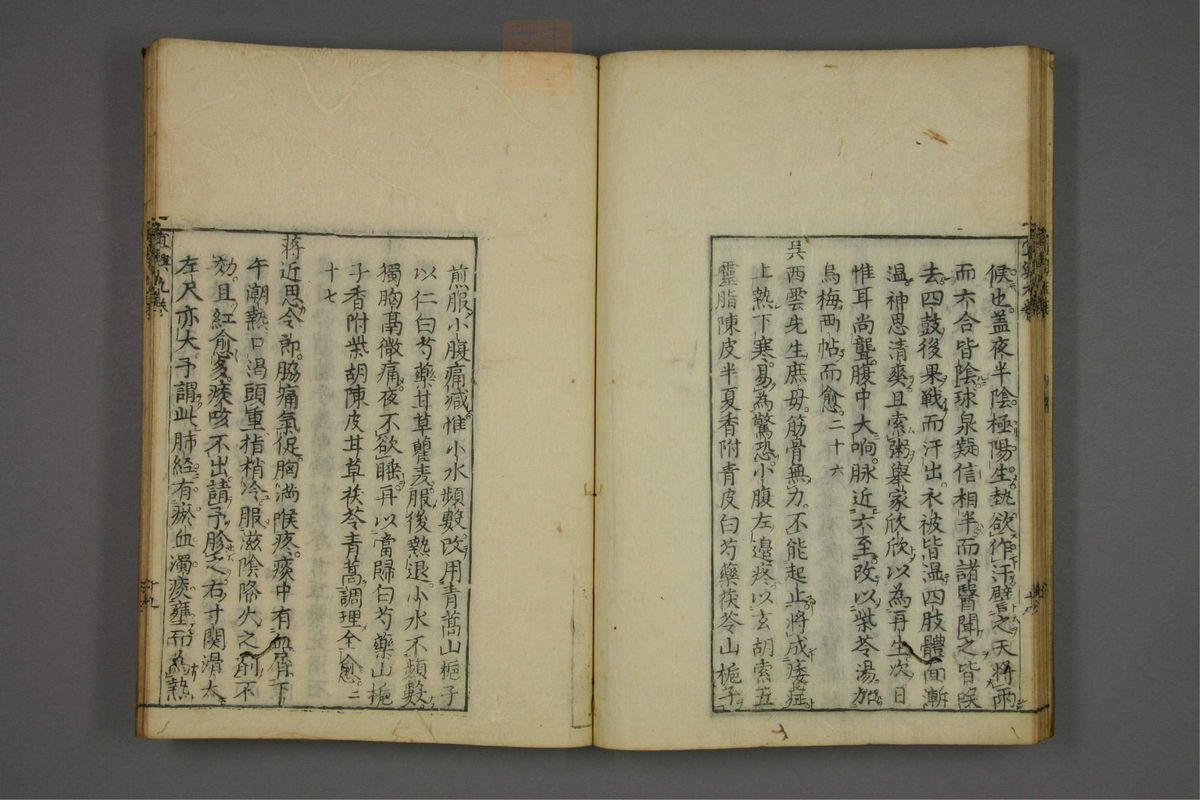 候也蓋夜半陰極陽生熱欲作汗譬之天將雨
而六合皆陰球泉疑信相半而諸醫聞之皆唉
去四鼓後果戰而汗出衣被皆温四肢體面漸
温神思清爽且索粥舉家欣欣以為再生次日
惟耳尚聾腹中大响脉近六至改以柴苓湯加
烏梅两帖而愈二十六
吳西雲先生庶母筋骨無力不能起止將成痿症
上熱下寒易為驚恐小腹左邉疼以玄胡索五
靈脂陳皮半夏香附青皮白芍藥茯苓山梔子
煎服小腹痛減惟小水頻數改用青蒿山梔子
以仁白芍藥甘草瞿麦服後熱退小水不頻數
獨胸鬲微痛夜不欲睡再以當歸白芍藥山梔
子香附柴胡陳皮甘草茯苓青蒿調理全愈二
十七
蔣近思令郎脇痛氣促胸滿喉疼痰中有血屑下
午潮熱口渴頭重指梢冷服滋陰降火之劑不
効且紅愈多痰咳不出請予胗之右寸関滑大
左尺亦大予謂此肺經有瘀血濁痰壅而為熱
十九